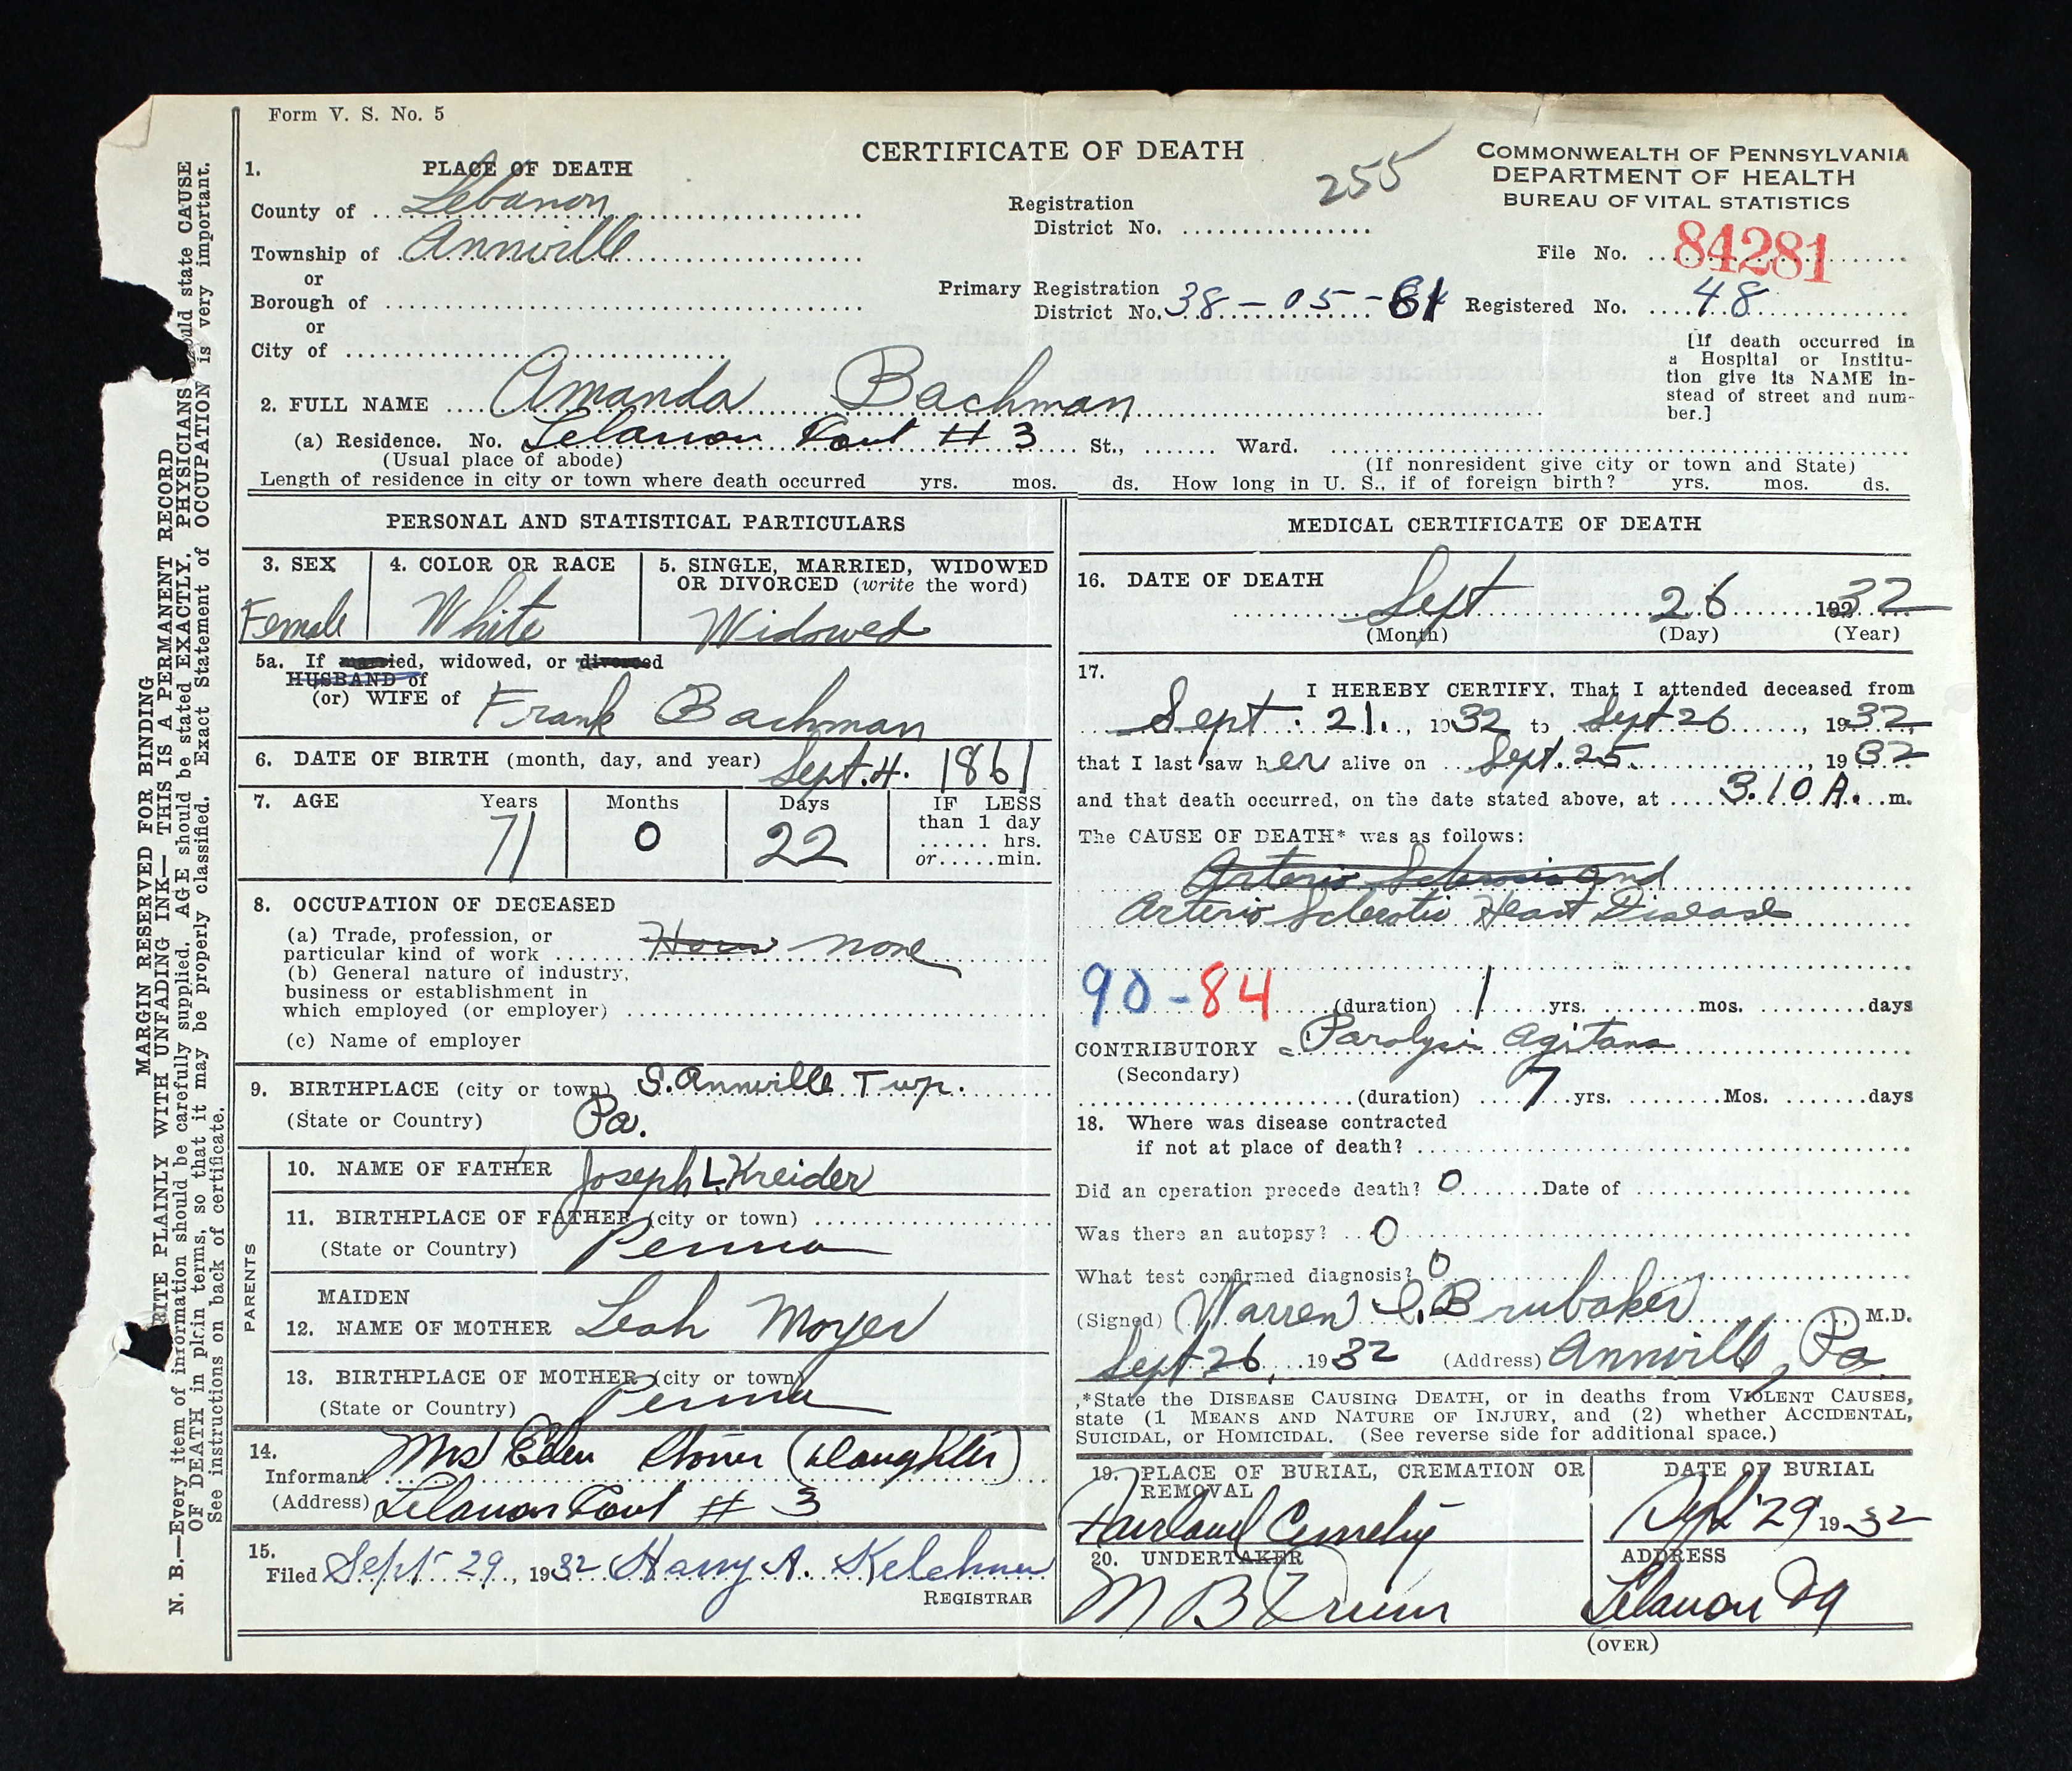 Form V. S. No. 5
CERTIFICATE OF DEATH
255
COMMONWEALTH OF PENNSYLVANIA
DEPARTMENT OF HEALTH
BUREAU OF VITAL STATISTICS
File No. 84281
Registered No. 48
1. PLACE OF DEATH
County of Lebanon
Township of Annville
or
Borough of
or
City of
Registration
District No.
Primary Registration
District No. 38-05-
[If death occurred in
a Hospital or Institu-
tion give its NAME in-
stead of street and num-
ber.]
2. FULL NAME Amanda Bachman
(a) Residence. No. Lebanon # 3 St., Ward.
(Usual place of abode) (If nonresident give city or town and State)
Length of residence in city or town where death occurred yrs. mos. ds. How long in U. S., if of foreign birth? yrs. mos. ds.
PERSONAL AND STATISTICAL PARTICULARS
3. SEX
Female
4. COLOR OR RACE
White
5. SINGLE, MARRIED, WIDOWED
OR DIVORCED (write the word)
Widowed
5a. If married, widowed, or divorced
HUSBAND of
(or) WIFE of Frank Bachman
6. DATE OF BIRTH (month, day, and year) Sept. 4. 1861
7. AGE Years Months Days IF LESS
than 1 day
71 0 22
hrs.
or min.
8. OCCUPATION OF DECEASED
(a) Trade, profession, or
particular kind of work none
(b) General nature of industry,
business or establishment in
which employed (or employer)
(c) Name of employer
9. BIRTHPLACE (city or town) S. Annville Twp.
(State or Country) Pa.
PARENTS
10. NAME OF FATHER Joseph L. Kreider
11. BIRTHPLACE OF FATHER (city or town)
(State or Country) Penna
MAIDEN
12. NAME OF MOTHER Leah Moyer
13. BIRTHPLACE OF MOTHER (city or town)
(State or Country) Penna
14.
Informant Mrs (Daughter)
(Address) Lebanon # 3
15.
Filed Sept 29, 1932 Harry A. Kelchner
REGISTRAR
MEDICAL CERTIFICATE OF DEATH
16. DATE OF DEATH
Sept 26 1932
(Month) (Day) (Year)
17.
I HEREBY CERTIFY, That I attended deceased from
Sept. 21, 1932 to Sept 26, 1932,
that I last saw her alive on Sept. 25, 1932
and that death occurred, on the date stated above, at 3.10 A. m.
The CAUSE OF DEATH* was as follows:
Arterio Sclerosis and
Arterio Sclerotic Heart Disease
90-84 (duration) 1 yrs. mos. days
CONTRIBUTORY Paralysis Agitans
(Secondary)
(duration) 7 yrs. Mos. days
18. Where was disease contracted
if not at place of death?
Did an operation precede death? 0 Date of
Was there an autopsy? 0
What test confirmed diagnosis? 0
(Signed) Warren Brubaker M.D.
Sept 26, 1932 (Address) Annville, Pa
*State the DISEASE CAUSING DEATH, or in deaths from VIOLENT CAUSES,
state (1 MEANS AND NATURE OF INJURY, and (2) whether ACCIDENTAL,
SUICIDAL, or HOMICIDAL. (See reverse side for additional space.)
19. PLACE OF BURIAL, CREMATION OR
REMOVAL
Fairland Cemetery
DATE OF BURIAL
Sept 29 1932
20. UNDERTAKER
M B
ADDRESS
Lebanon Pa
(OVER)
MARGIN RESERVED FOR BINDING
WRITE PLAINLY WITH UNFADING INK—THIS IS A PERMANENT RECORD
N. B.—Every item of information should be carefully supplied. AGE should be stated EXACTLY. PHYSICIANS should state CAUSE
OF DEATH in plain terms, so that it may be properly classified. Exact Statement of OCCUPATION is very important.
See instructions on back of certificate.